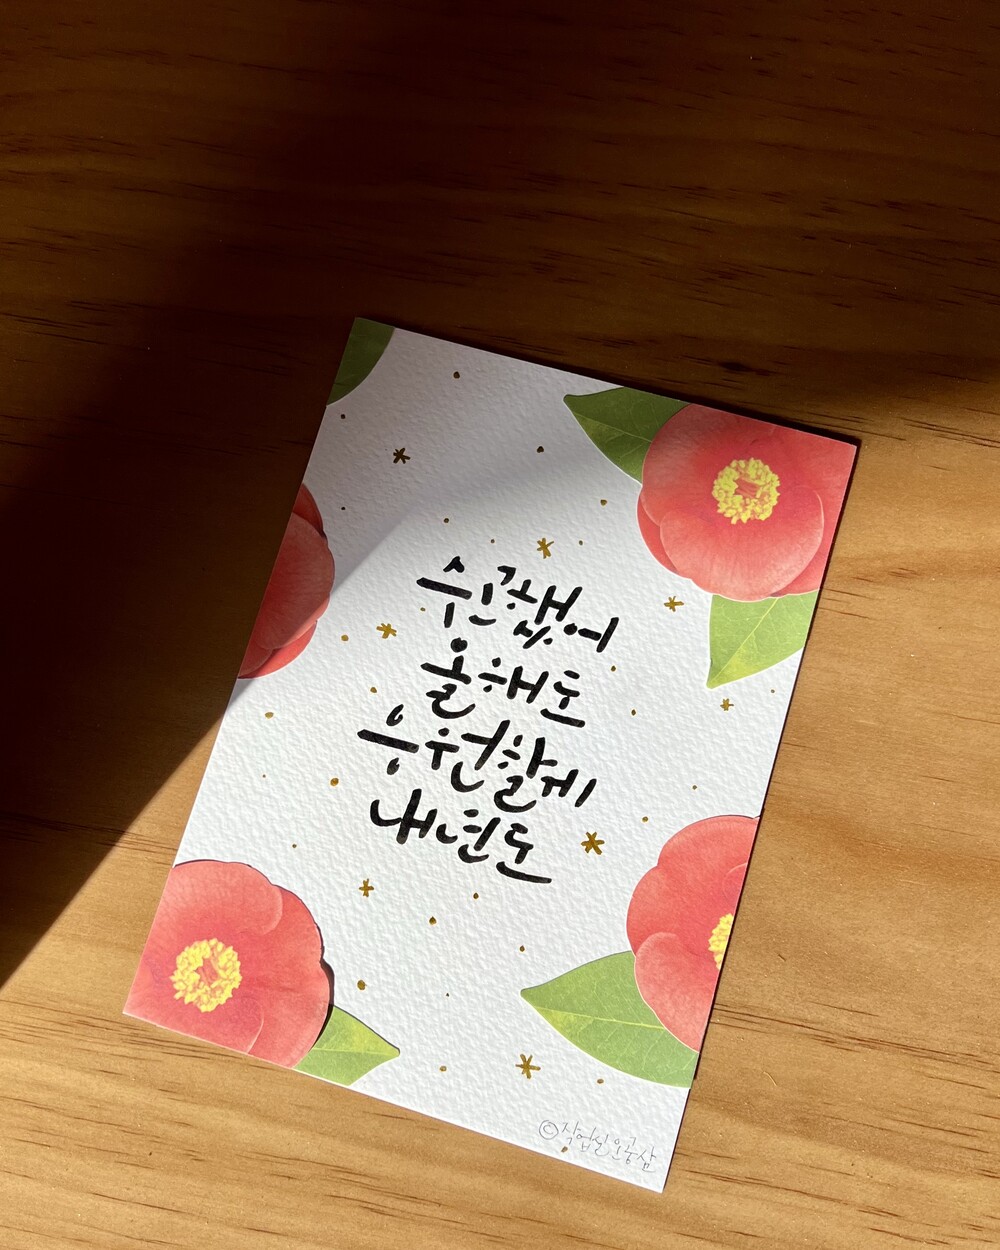 수고했어
올해도
응원할게
내년도
©작업실